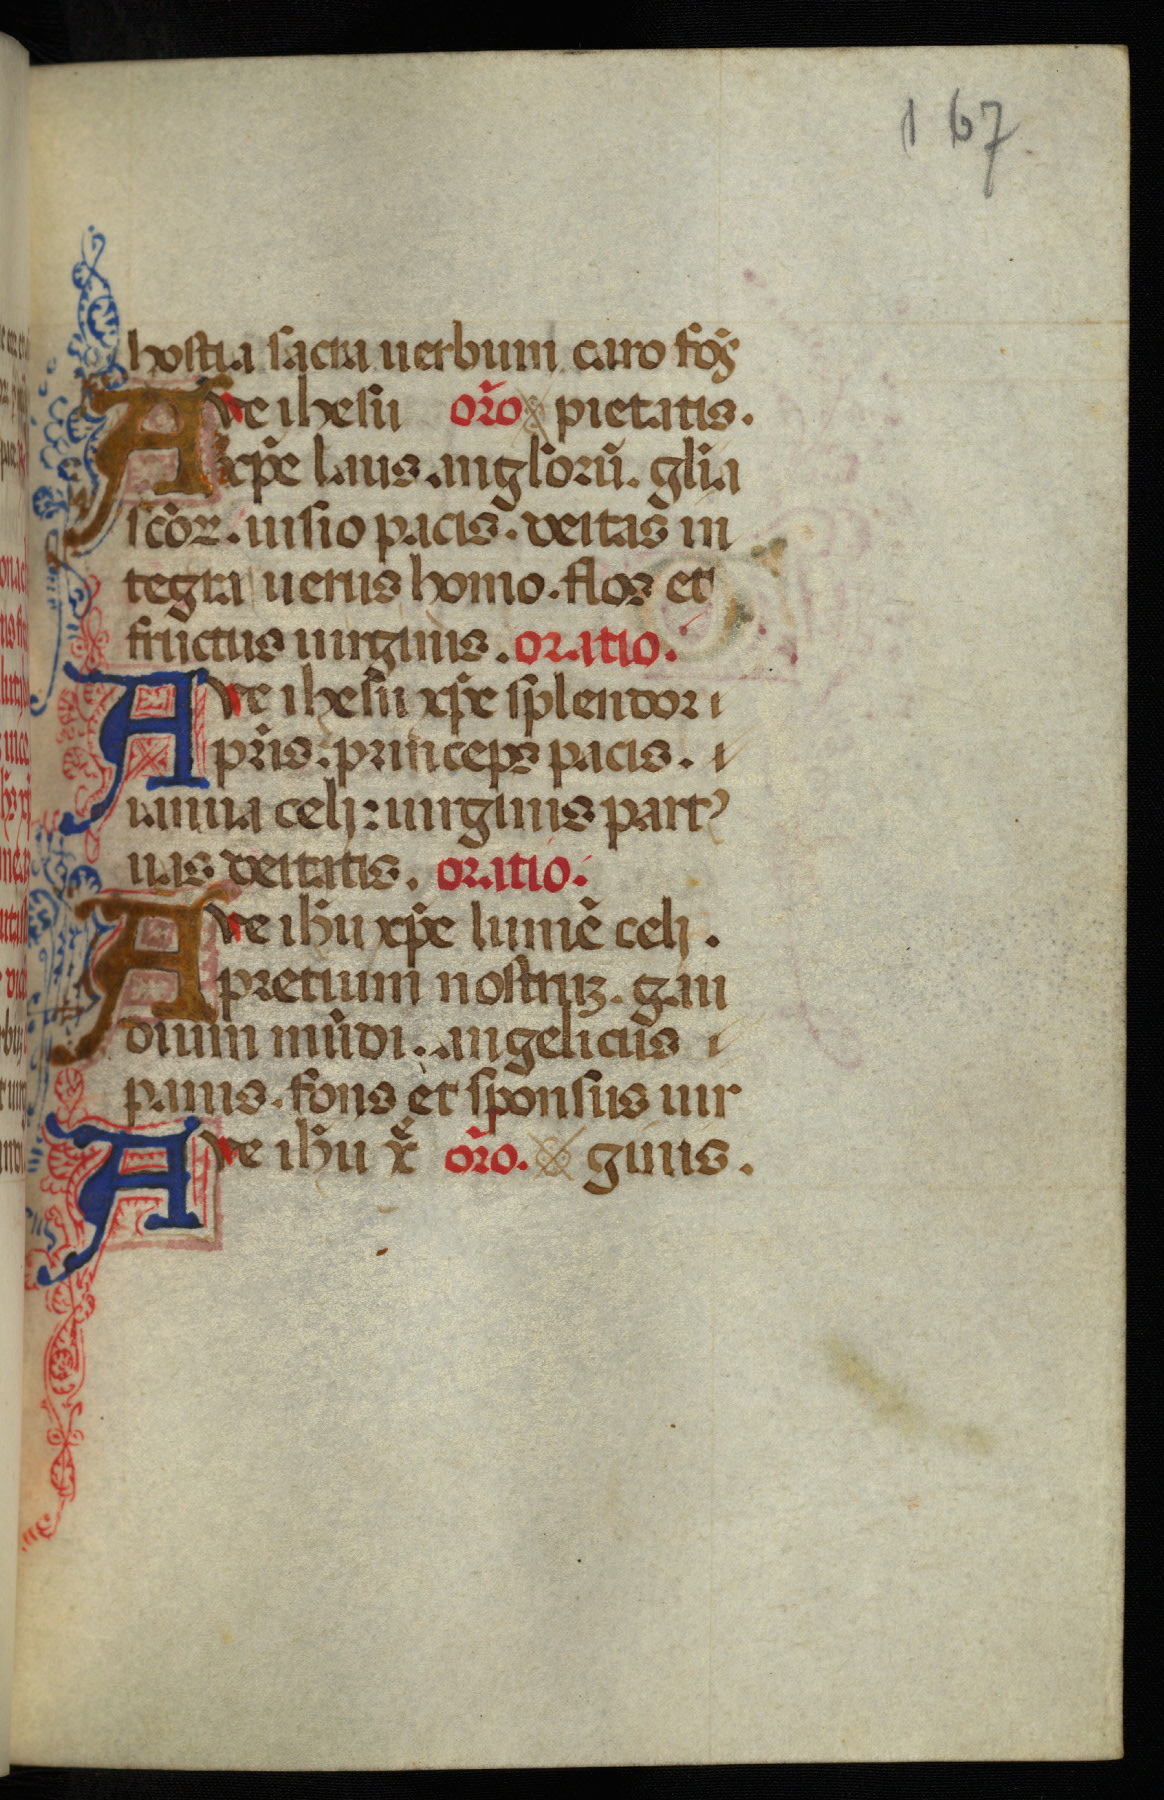 167
hostia sacra uerbum caro fōs
Aue ihesu oro pietatis.
xp̄e laus angloꝝ. glia
scōꝝ. uisio pacis. deitas in
tegra uerus homo. flos et
fructus uirginis. oratio.
Aue ihesu xp̄e splendor
pr̄is. princeps pacis.
ianua celi: uirginis part᾿
uas deitatis. oratio.
Aue ihū xp̄e lumē celi.
pretium nostrūꝫ. gau
dium mūdi. angelicus
panis. fons et sponsus uir
Aue ihū x̄e oro. ginis.